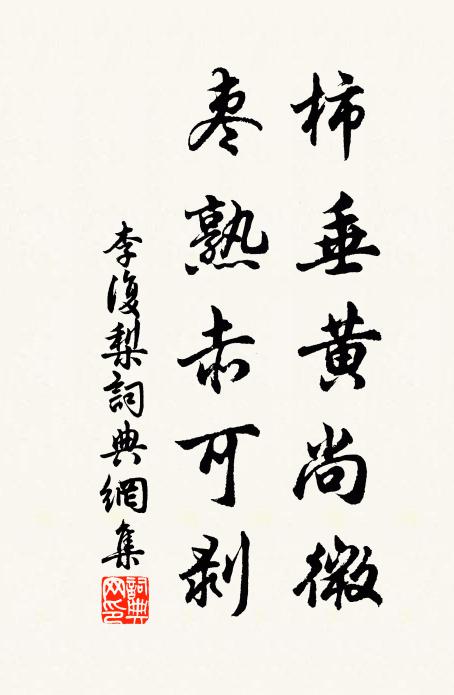 柿垂黄尚微
枣熟赤可剥
李復梨詞典網集
詞典网印